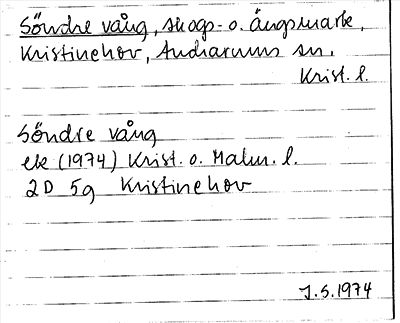 Söndre vång, skogs- o. ängsmark,
Kristinehov, Andrarums sn.
Krist. l.
Söndre vång
ek (1974) Krist. o. Malm. l.
2D 5g Kristinehov
J.S. 1974